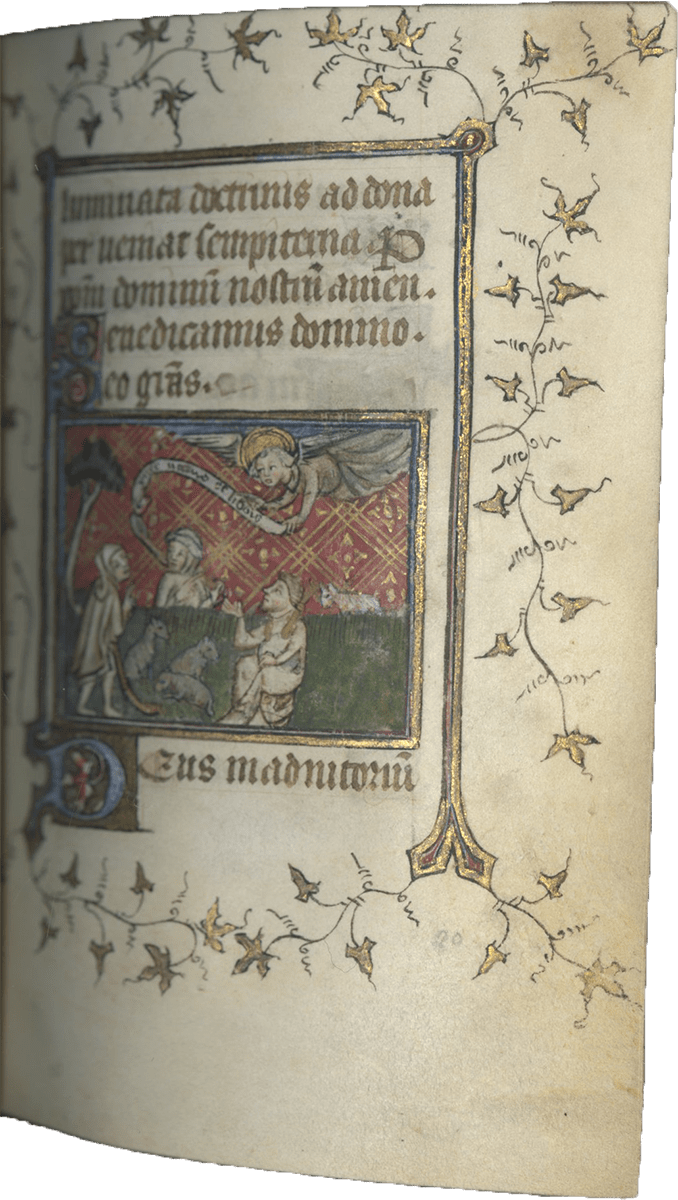 luminata doctrinis ad dona
per ueniat sempiterna P
xpm dominū nostrū amen.
Benedicamus domino.
Deo grās.
Deus in adiutoriū
20